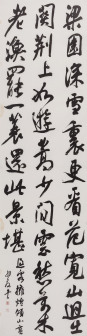 梁園深雪裏更看范寬山迥出
關荆上如遊嵩少間雲愁萬木
老漁罷一蓑還此景堪